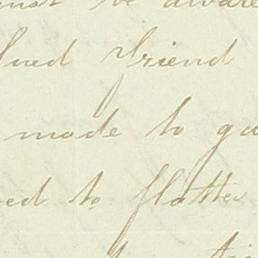 must be aware
lued friend
made to ga
ed to flatter